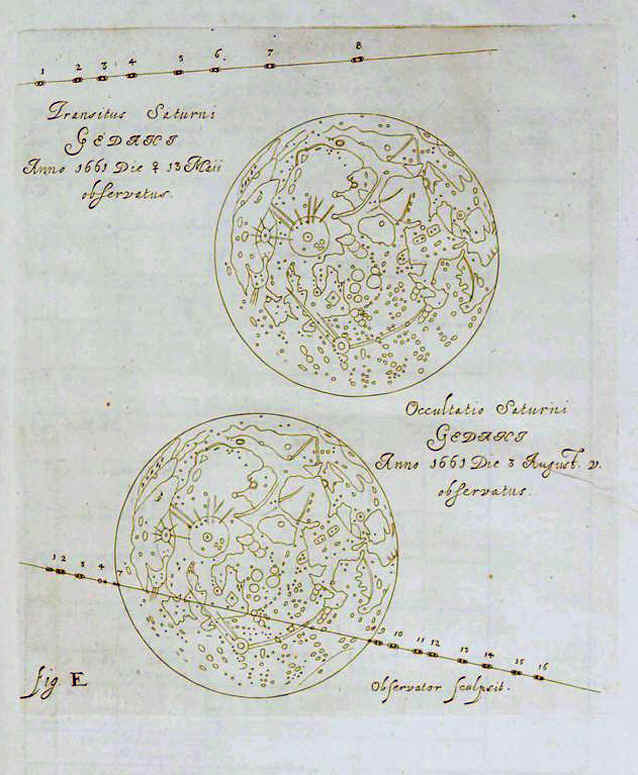 1 2 3 4 5 6 7 8
Transitus Saturni
GEDANI
Anno 1661 Die ☿ 13 Maii
observatus.
Occultatio Saturni
GEDANI
Anno 1661 Die 3 August. v.
observatus.
1 2 3 4 7
9 10 11 12 13 14 15 16
fig. E
Observator sculpsit.